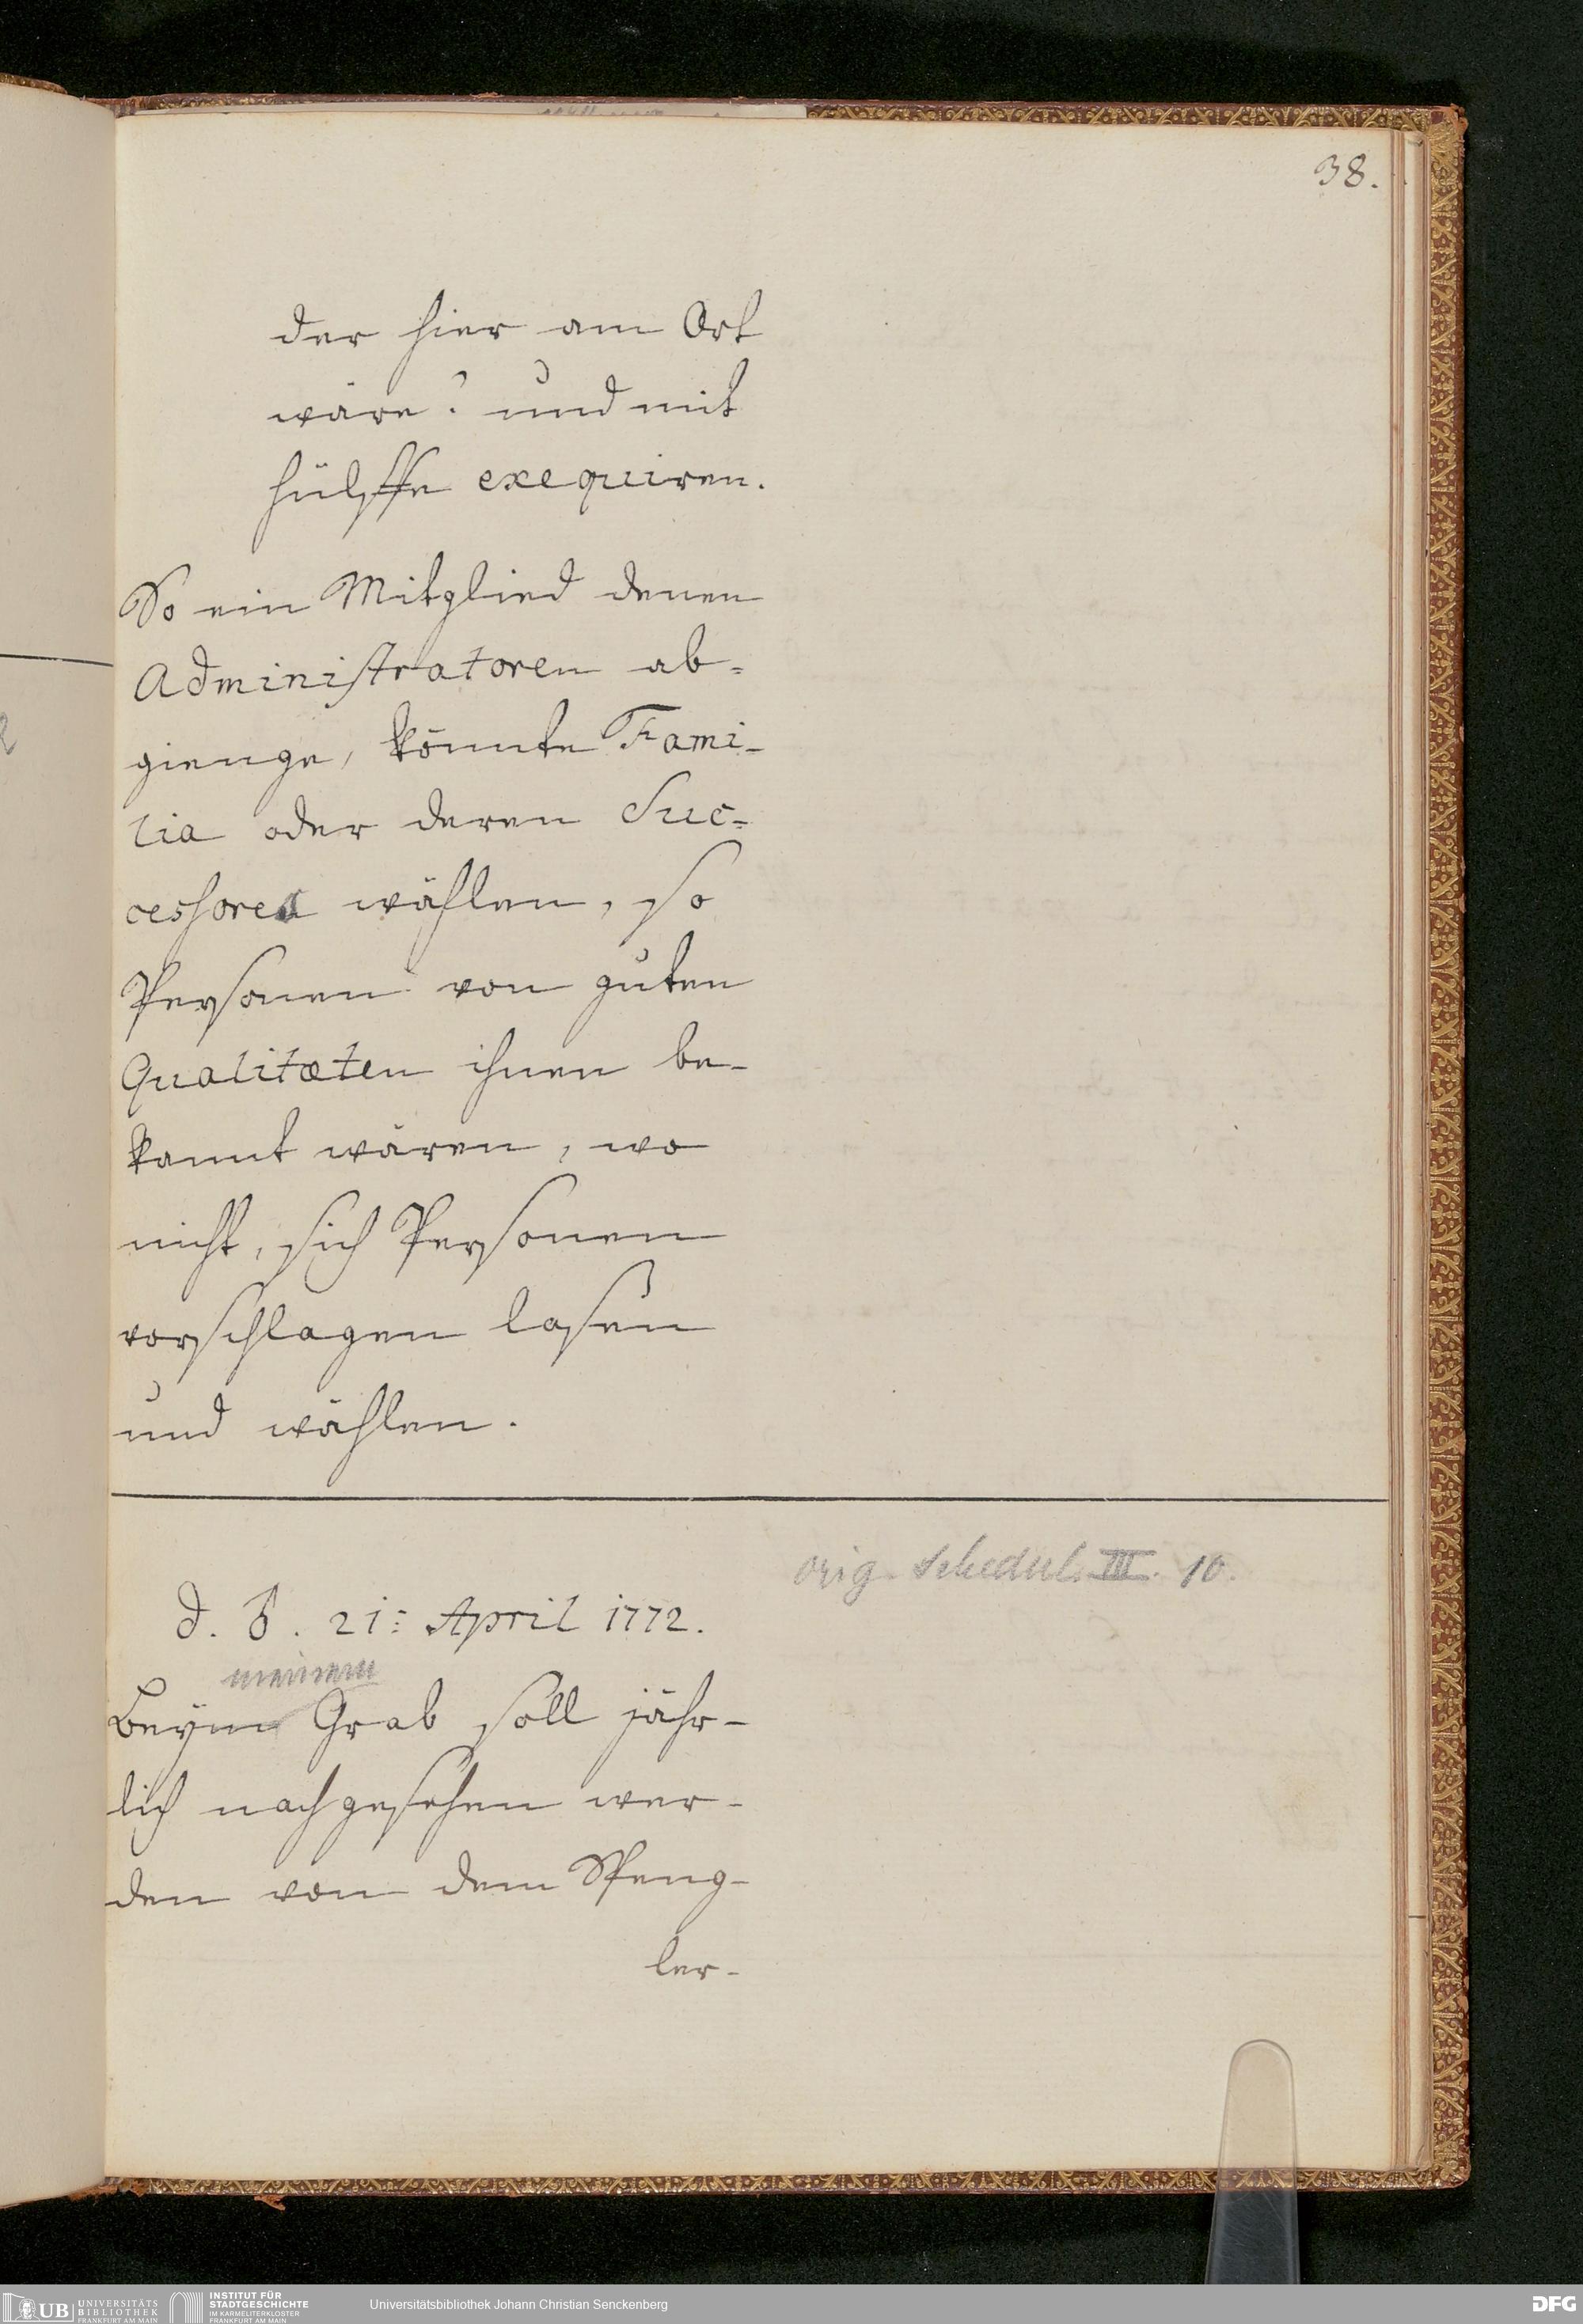 38.
der hier am Ort
wäre? und mit
hülffe exequiren.
So ein Mitglied denen
Administratoren ab-
gienge, könnte Fami-
lia oder deren Suc-
cessores wählen, so
Personen von guten
Qualitæten ihnen be-
kannt wären, wo
nicht, sich Personen
vorschlagen lasen
und wählen.
orig. Schedul. III. 10.
d. ♂. 21: April 1772.
meinem
Beym Grab soll jähr-
lich nachgesehen wer-
den von dem Speng-
ler-
UB UNIVERSITÄTS
BIBLIOTHEK
FRANKFURT AM MAIN
INSTITUT FÜR
STADTGESCHICHTE
IM KARMELITERKLOSTER
FRANKFURT AM MAIN
Universitätsbibliothek Johann Christian Senckenberg
DFG